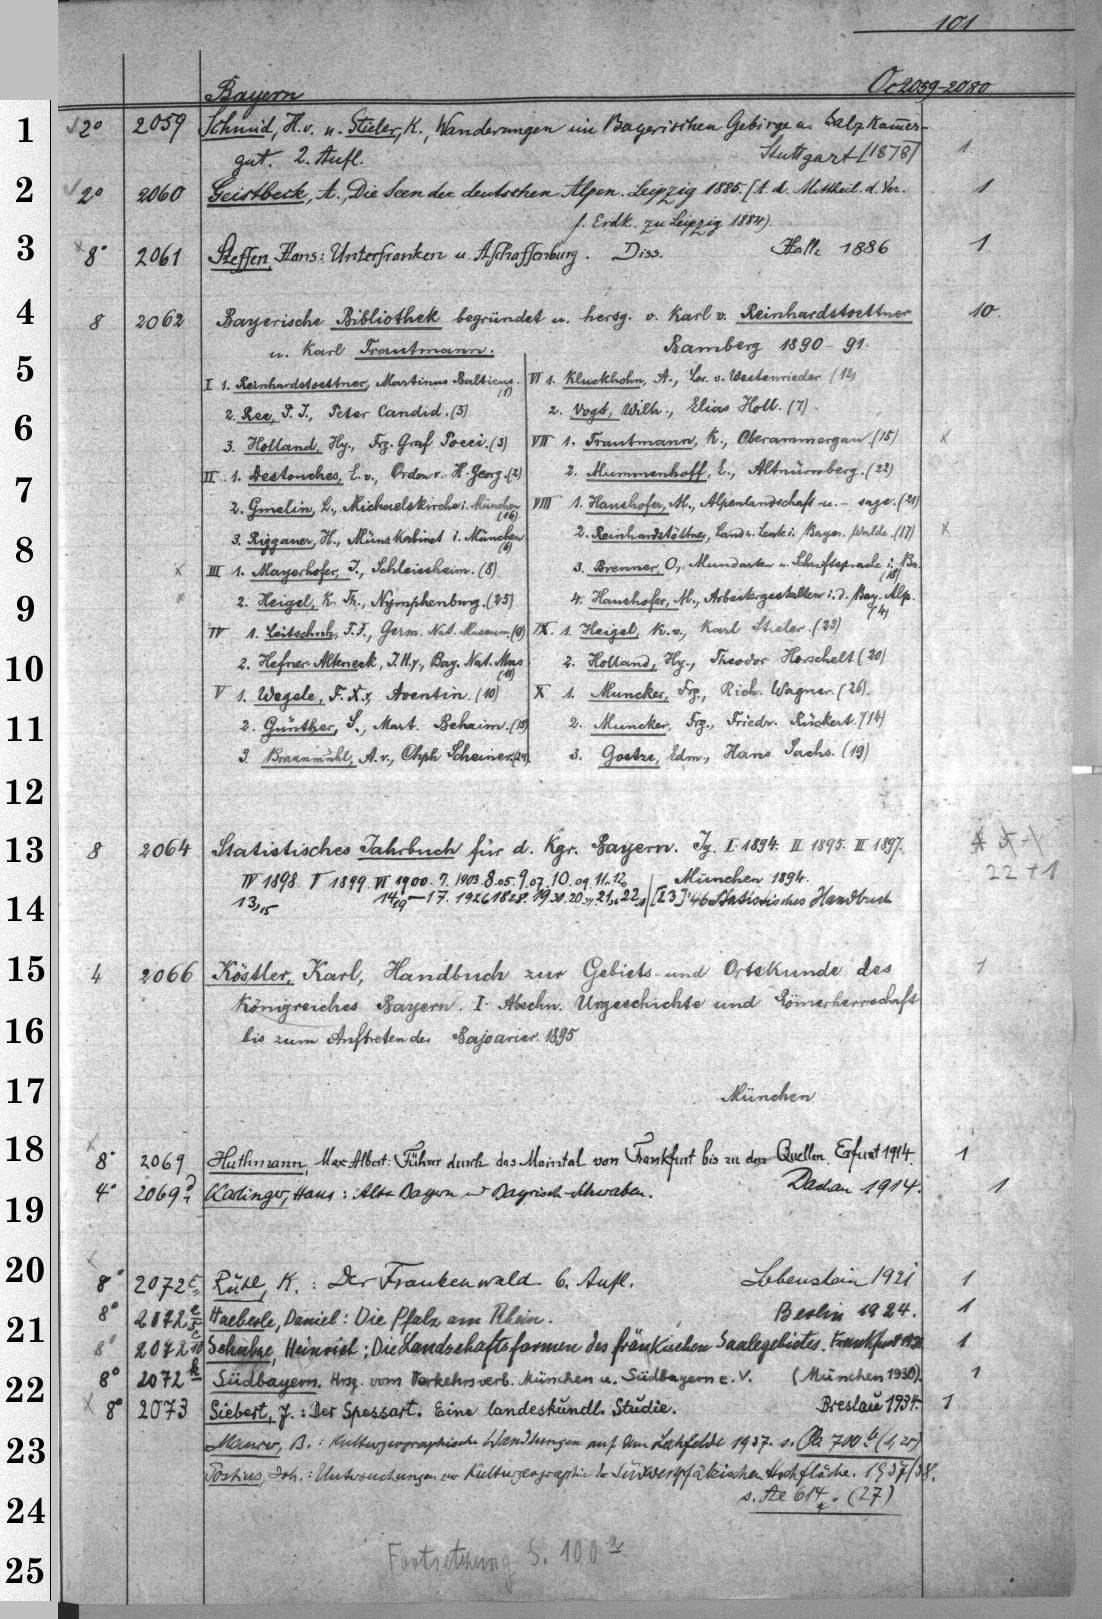 101
Bayern Oc 2059-2080
1 2° 2059 Schmid, H. v. u. Stieler, K., Wanderungen im Bayerischen Gebirge u. Salzkam̅er-
gut. 2. Aufl. Stuttgart [1878] 1
2 2° 2060 Geistbeck, A., Die Seen der deutschen Alpen. Leipzig 1885 [A. d. Mittheil. d. Ver. 1
f. Erdk. zu Leipzig 1884).
3 8° 2061 Steffen, Hans: Unterfranken u. Aschaffenburg. Diss. Halle 1886 1
4 8 2062 Bayerische Bibliothek begründet u. hersg. v. Karl v. Reinhardstoettner 10.
u. Karl Trautmann. Bamberg 1890-91.
5 I 1. Reinhardstoettner, Martinus Balticus. (1) VI 1. Kluckhohn, A., Lor. v. Westenrieder (12)
2. Ree, P. J., Peter Candid. (5) 2. Vogt, Wilh., Elias Holl. (7)
6 3. Holland, Hy., Frz. Graf Pocci. (3) VII 1. Trautmann, K., Oberammergau. (15) x
II 1. Destouches, E. v., Orden v. H. Georg. (2) 2. Mummenhoff, E., Altnürnberg. (22)
7 2. Gmelin, L., Michaelskirche i. München (16) VIII 1. Haushofer, M., Alpenlandschaft u. - sage. (21)
8 3. Riggauer, H., Münzkabinet i. München (6) 2. Reinhardstöttner, Land u. Leute i. Bayer. Walde. (17) x
x III 1. Mayerhofer, J., Schleissheim. (8) 3. Brenner, O., Mundarten u. Schriftsprache i. Ba. (18)
9 x 2. Heigel, K. Th., Nymphenburg. (25) 4. Haushofer, M., Arbeitergestalten i. d. Bay. Alp. (4)
IV 1. Leitschuh, F. F., Germ. Nat. Museum. (9) IX. 1. Heigel, K. v., Karl Stieler. (23)
10 2. Hefner-Alteneck, J. H. v., Bay. Nat. Mus (11) 2. Holland, Hy., Theodor Horschelt (20)
V 1. Wegele, F. X. v., Aventin. (10) X 1. Muncker, Frz., Rich. Wagner. (26).
11 2. Günther, S., Mart. Behaim. (13) 2. Muncker, Frz., Friedr. Rückert. (14)
3. Braunmühl, A. v., Chph Scheiner. (24) 3. Goetze, Edm., Hans Sachs. (19)
12
13 8 2064 Statistisches Jahrbuch für d. Kgr. Bayern. Jg. I. 1894. II 1895. III 1897.
IV 1898. V 1899. VI 1900. 7. 1903. 8.05. 9.07. 10.09. 11. München 1894. 22 + 1
14 13,15 14,19-17. 1926 [23] '46 Statistisches Handbuch
15 4 2066 Köstler, Karl, Handbuch zur Gebiets- und Ortskunde des 1
Königreiches Bayern. I. Abschn. Urgeschichte und Römerherrschaft
16 bis zum Auftreten der Bajoarier. 1895
17 München
18 8° 2069 Huthmann, Max Albert: Führer durch das Maintal von Frankfurt bis zu den Quellen. Erfurt 1914. 1
19 4° 2069 Kadinger, Hans: Alt Bayern u. Bayrisch-Schwaben. Dachau 1914. 1
20 8° 2072 Rühl, K.: Der Frankenwald. 6. Aufl. Lobenstein 1921 1
21 8° 2072 Haeberle, Daniel: Die Pfalz am Rhein. Berlin 1924. 1
8° 2072 Schultze, Heinrich: Die Landschaftsformen des fränkischen Saalegebietes. Frankfurt 1930. 1
22 8° 2072 Südbayern. Hrsg. vom Verkehrsverb. München u. Südbayern e. V. (München 1930). 1
x 8° 2073 Siebert, J.: Der Spessart. Eine landeskundl. Studie. Breslau 1934. 1
23 Maurer, B.: Kulturgeographische Wandlungen auf dem Lechfelde 1937. s. Ob 700
Postius, Joh.: Untersuchungen zur Kulturgeographie der Südwestpfälzischen Hochfläche. 1937/38.
24 s. Ae 614 (27)
25 Fortsetzung S. 100 a